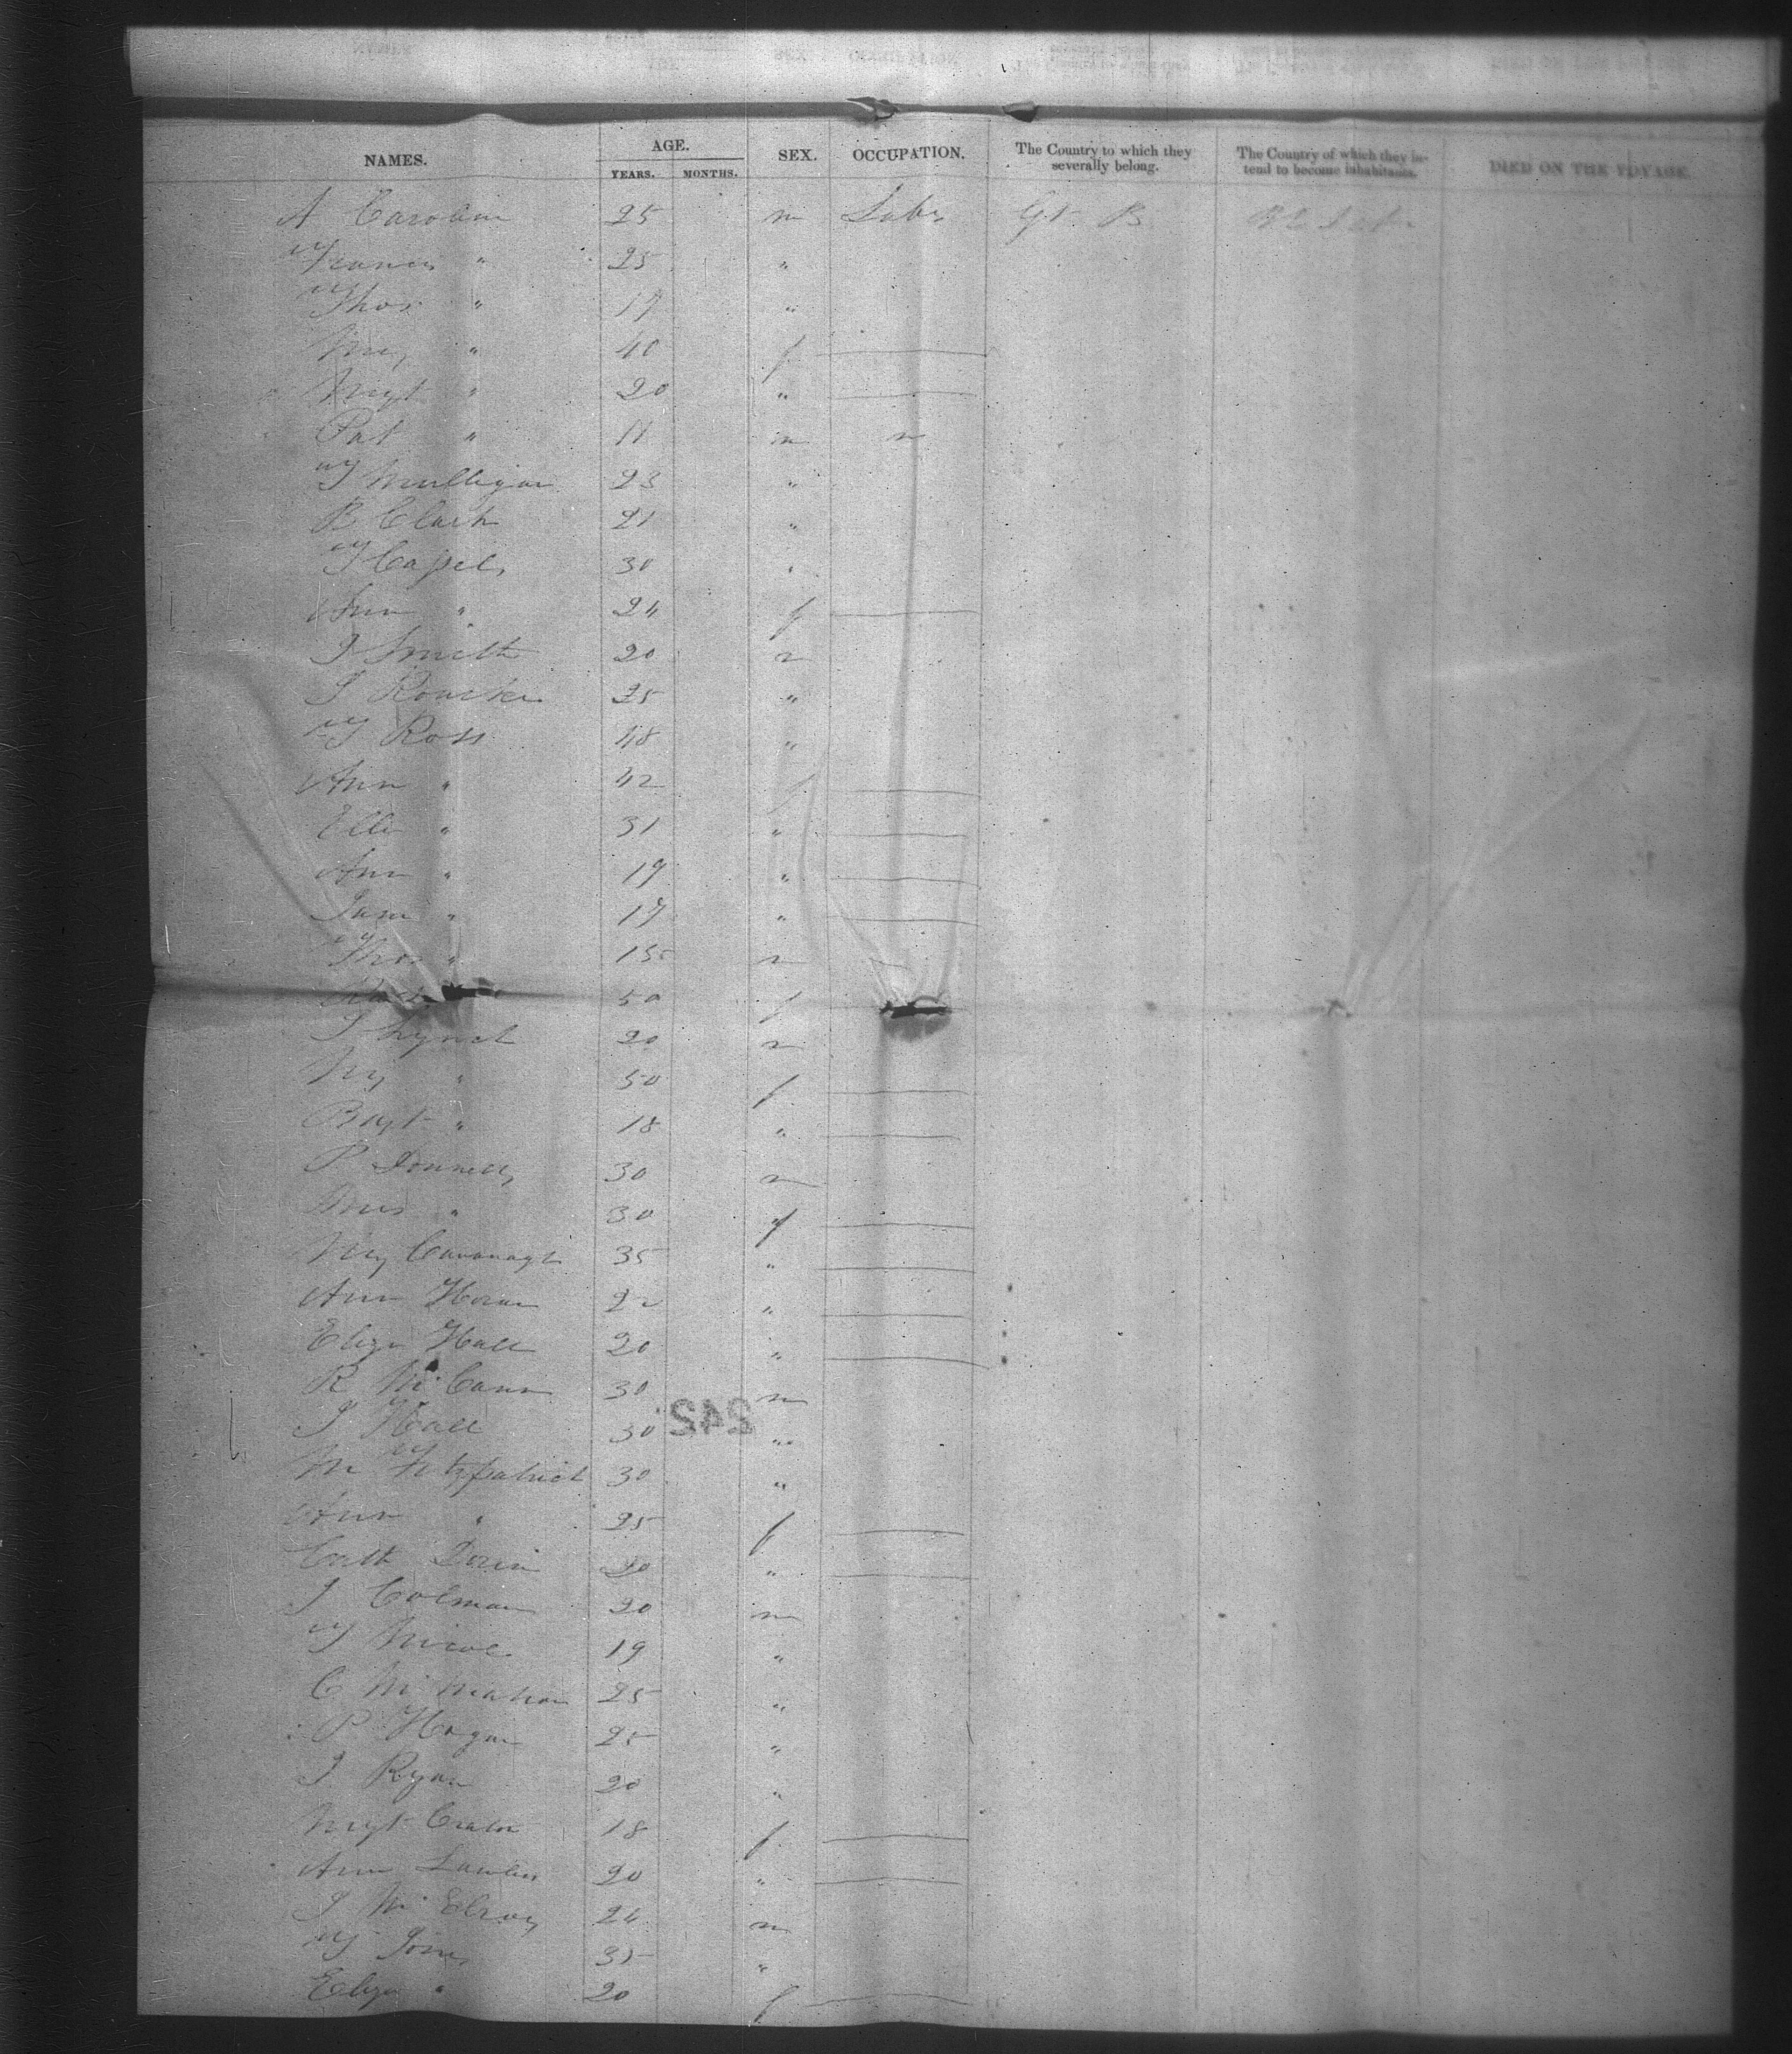 NAMES. AGE. SEX. OCCUPATION. The Country to which they severally belong. The Country of which they intend to become inhabitants. DIED ON THE VOYAGE.
YEARS. MONTHS.
A 25 m Labr Gt. B
Francis " 25 "
Thos " 17 "
My " 40 f
Mgt " 20 "
Pat " 11 m
T Mulligan 23 "
B Clark 21 "
30 "
Ann " 24 f
J Smith 20 m
J Rourke 25 "
T Ross 48 "
Ann " 42 f
Ellen " 31 "
Ann " 19 "
Jane " 17 "
Thos " 15 m
50 f
J Lynch 20 m
My " 50 f
Bgt " 18 "
P Donnelly 30 m
Mrs " 30 f
My Cavanagh 35 "
Ann Horan 22 "
Eliza Hall 20 "
R McCann 30 m
J Hall 30 "
242
M Fitzpatrick 30 "
Ann " 25 f
Cath 20 "
J Colman 20 m
T 19 "
C McMahon 25 "
P Hogan 25 "
J Ryan 20 "
Mgt 18 f
Ann Lawler 20 "
J McElroy 24 m
T 35 "
Eliza " 20 f